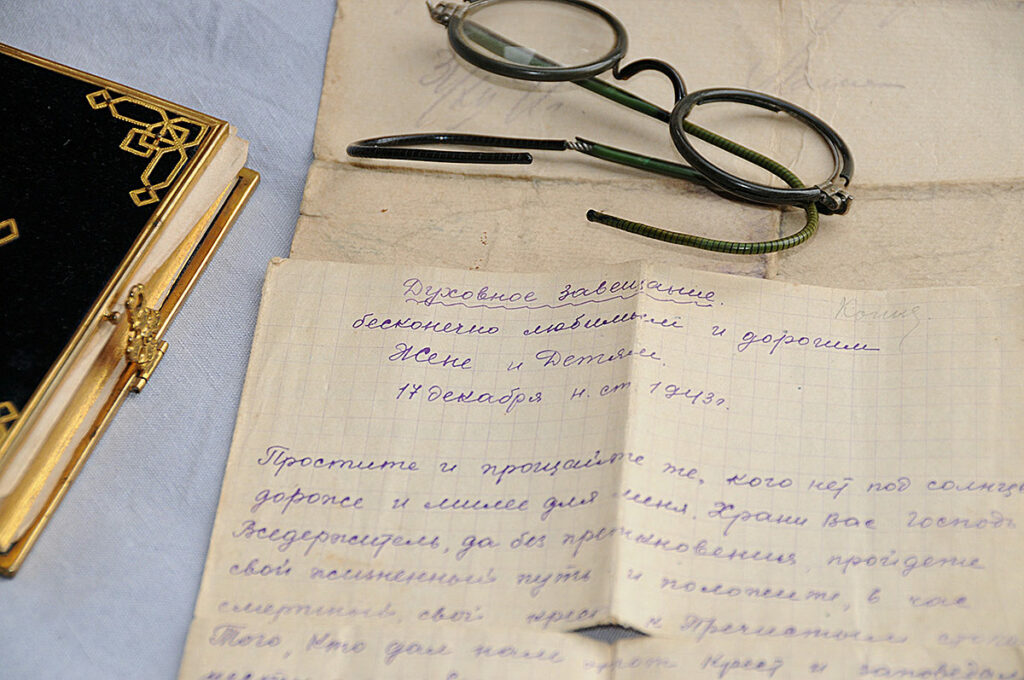 Духовное завещание.
Копия.
бесконечно любимым и дорогим
Жене и Детям.
17 декабря н. ст. 1943 г.
Простите и прощайте те, кого нет под солнцем
дороже и милее для меня. Храни Вас Господь
Вседержитель, да без преткновения, пройдете
свой жизненный путь и положите, в час
смертный, свой крест к Пречистым стопам
Того, Кто дал нам этот Крест и заповедал